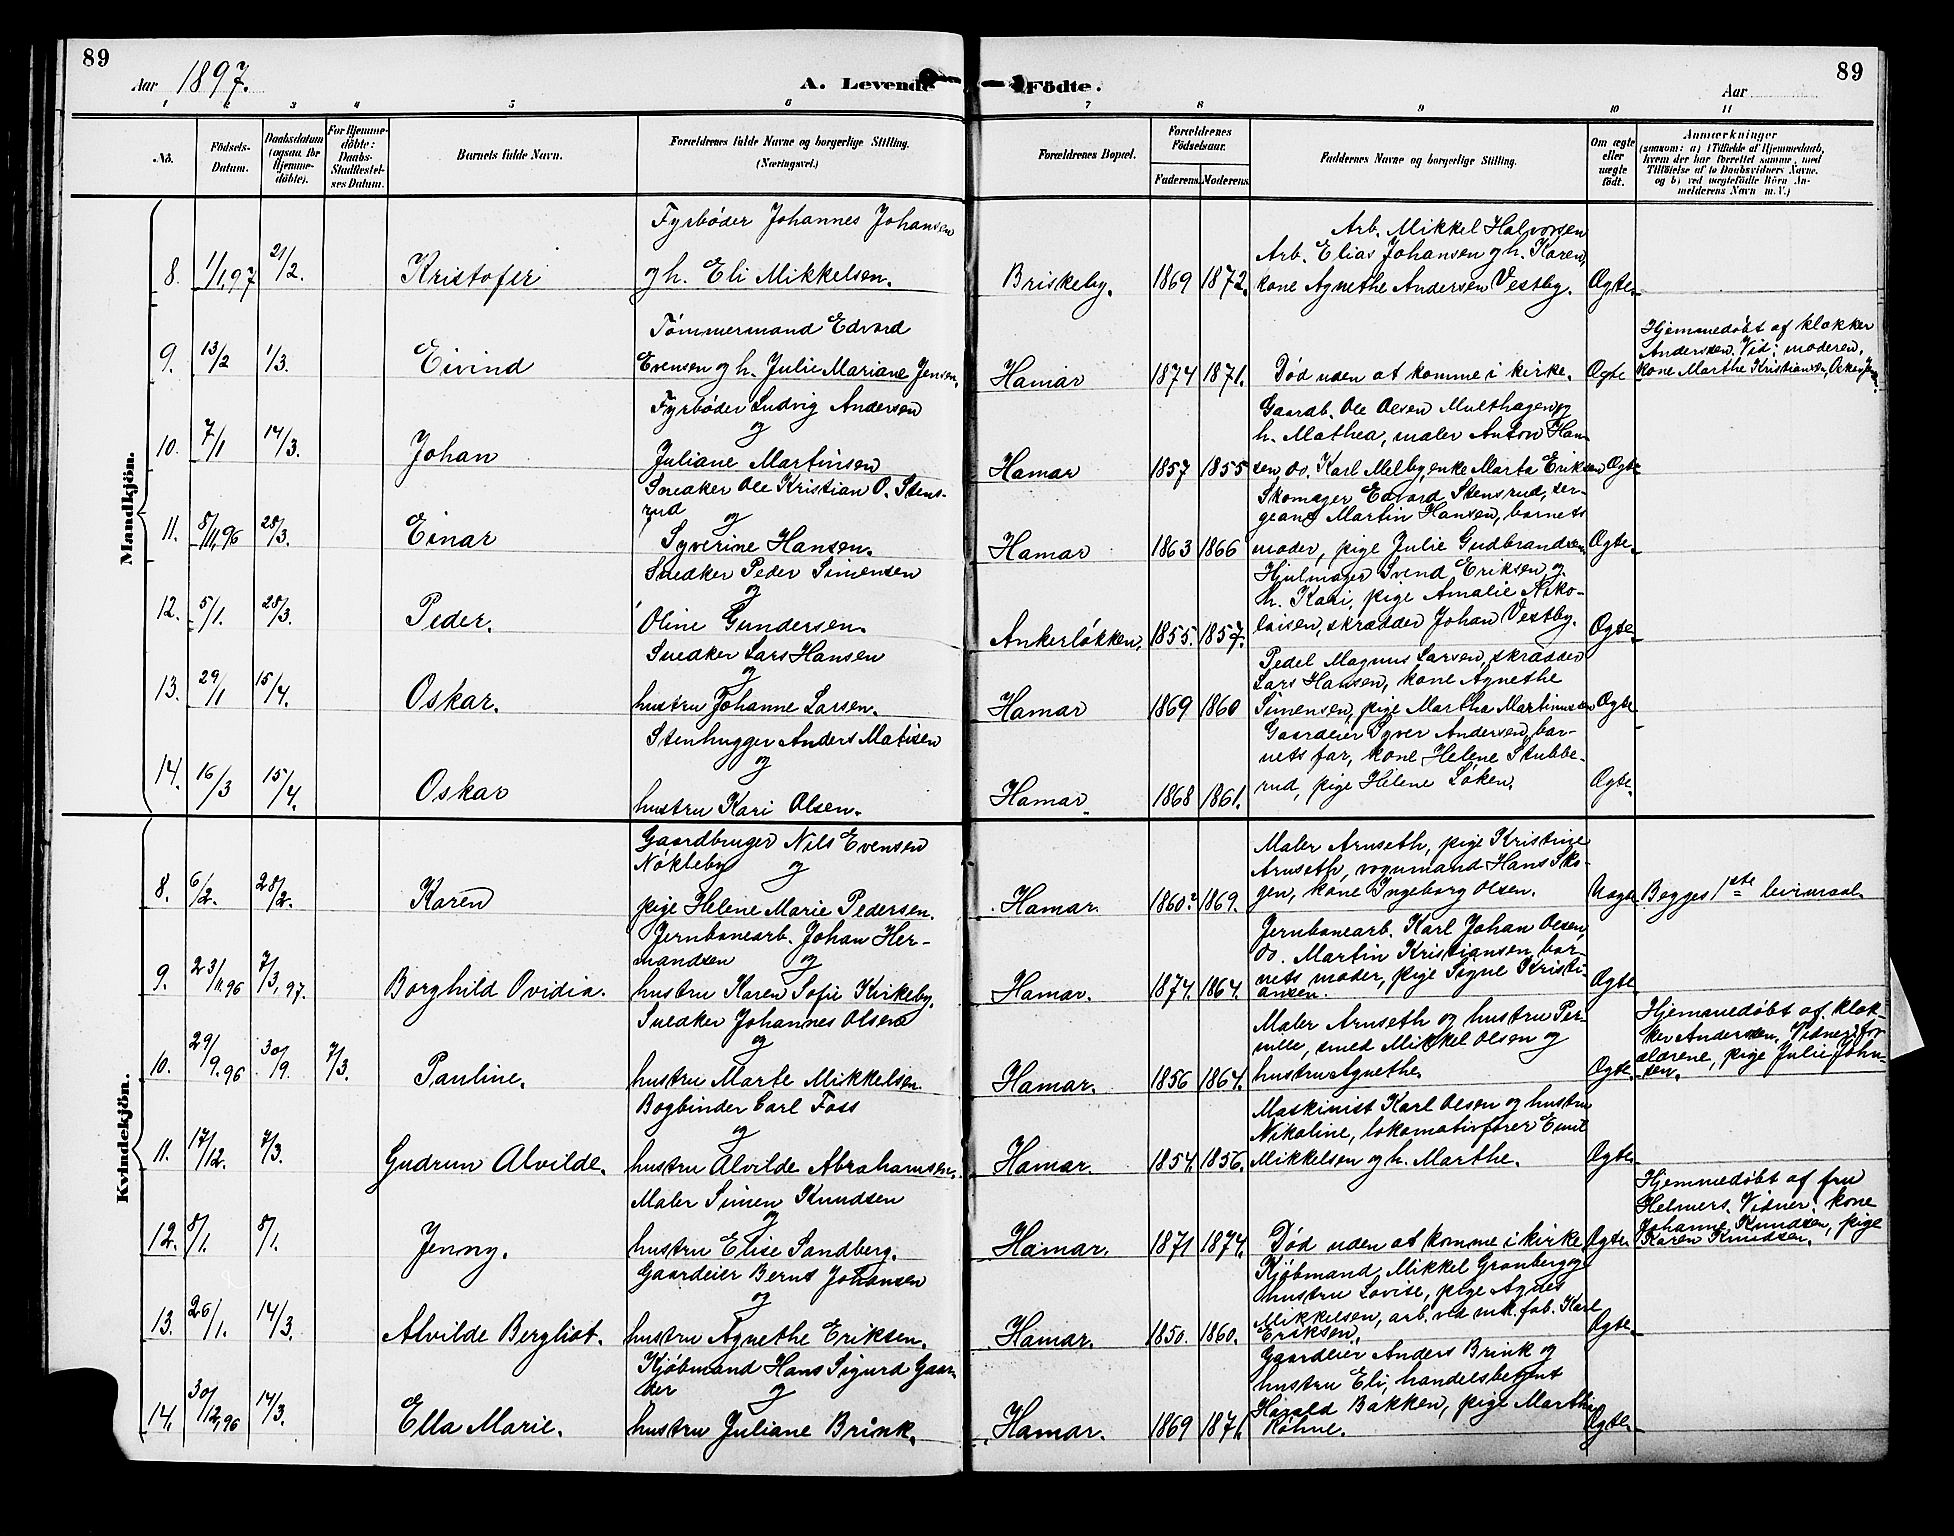 89
Aar 1897.
A. Levende
Födte.
89
Aar
1 2 3 4 5 6 7 8 9 10 11
No.
Födsels-
Datum.
Daabsdatum
(ogsaa for
Hjemme-
döbte).
For Hjemme-
döbte:
Daabs-
Stadfæstel-
ses Datum.
Barnets fulde Navn.
Forældrenes fulde Navne og borgerlige Stilling.
(Næringsvei.)
Forældrenes Bopæl.
Forældrenes
Födselsaar.
Faderens. Moderens.
Faddernes Navne og borgerlige Stilling.
Om ægte
eller
uægte
født.
Anmærkninger
(saasom: a) i Tilfælde af Hjemmedaab,
hvem der har forrettet samme, med
Tilföielse af to Daabsvidners Navne,
og b) ved uægtefödte Börn An-
melderens Navn m. V.)
Mandkjön.
8. 1/1,97 21/2. Kristofer
Fyrbøder Johannes Johansen
og h. Eli Mikkelsen.
Briskeby. 1869 1872.
Arb. Mikkel Halvorsen
Arb. Elias Johansen og h. Karen,
kone Agnethe Andersen Vestby.
Ægte.
9. 13/2 1/3. Eivind
Tømmermand Edvard
Evensen og h. Julie Mariane Jensen.
Hamar 1874 1871.
Død uden at komme i kirke.
Ægte
Hjemmedøbt af klokker
Anderssen. Vid: moderen,
kone Marthe Kristiansen,
10. 7/1 14/3. Johan
Fyrbøder Ludvig Andersen
og
Juliane Martinsen
Hamar 1857 1855
Gaardb. Ole Olsen Multhagen og
h. Mathea, maler Anton Han-
sen, do. Karl Melby, enke Marta Eriksen
Ægte
11. 8/11,96 28/3. Einar
Snedker Ole Kristian O. Stens-
rud
og
Syverine Hansen.
Hamar 1863 1866
Skomager Edvard Stensrud, ser-
geant Martin Hansen, barnets
moder, pige Julie Gudbrandsen
Ægte.
12. 5/1. 28/3. Peder.
Snedker Peder Simensen
og
Oline Gundersen.
Ankerløkken. 1855. 1857.
Hjulmager Svend Eriksen og
h. Kari, pige Amalie Niko-
laisen, skrædder Johan Vestby.
Ægte
13. 29/1 15/4. Oskar.
Snedker Lars Hansen
og
hustru Johanne Larsen.
Hamar 1869 1860
Pedel Magnus Larsen, skrædder
Lars Hansen, kone Agnethe
Simensen, pige Martha Martinussen
Ægte
14. 16/3 15/4. Oskar
Stenhugger Anders Matisen
og
hustru Kari Olsen.
Hamar 1868 1861.
Gaardeier Syver Andersen, bar-
nets far, kone Helene Stubbe-
rud, pige Helene Løken.
Ægte.
Kvindekjön.
8. 6/2. 28/2. Karen
Gaardbruger Nils Evensen
Nøkleby og
pige Helene Marie Pedersen.
Hamar. 1860? 1869.
Maler Arnseth, pige Kristine
Arnseth, vognmand Hans Sko-
gen, kone Ingeborg Olsen.
Uægte
Begges 1ste leirmaal.
9. 23/11,96 7/3,97. Borghild Ovidia.
Jernbanearb. Johan Her-
mandsen og
hustru Karen Sofie Kirkeby.
Hamar. 1874. 1864.
Jernbanearb. Karl Johan Olsen,
do. Martin Kristiansen, bar-
nets moder, pige Signe Kristi-
ansen.
Ægte
10. 29/9.96 30/9. 7/3. Pauline.
Snedker Johannes Olsen
og
hustru Marte Mikkelsen
Hamar. 1856 1864.
Maler Arnseth og hustru Per-
nille, smed Mikkel Olsen og
hustru Agnethe.
Ægte.
Hjemmedøbt af klok-
ker Anderssen. Vidner: for
ældrene, pige Julie John-
sen.
11. 17/12. 7/3. Gudrun Alvilde.
Bogbinder Carl Foss
og
hustru Alvilde Abrahamsen.
Hamar. 1854. 1856.
Maskinist Karl Olsen og hustru
Nikoline, lokomotivfører Emil
Mikkelsen og h. Marthe.
Ægte
12. 8/1. 8/1. Jenny.
Maler Simen Knudsen
og
hustru Elise Sandberg.
Hamar. 1871 1874.
Død uden at komme i kirke
Ægte
Hjemmedøbt af fru
Helmers. Vidner: kone
Johanne Knudsen, pige
Karen Knudsen.
13. 26/1. 14/3. Alvilde Bergliot.
Gaardeier Bernt Johansen
og
hustru Agnethe Eriksen.
Hamar. 1850. 1860.
Kjøbmand Mikkel Grønberg og
hustru Lovise, pige Agnes
Mikkelsen, arb. ved mk. fab. Karl
Eriksen.
Ægte.
14. 30/12,96 14/3. Ella Marie.
Kjøbmand Hans Sigurd Gaar-
der og
hustru Juliane Brink.
Hamar. 1869 1871.
Gaardeier Anders Brink og
hustru Eli, handelsbetjent
Harald Bakken, pige Marthe
Ægte.